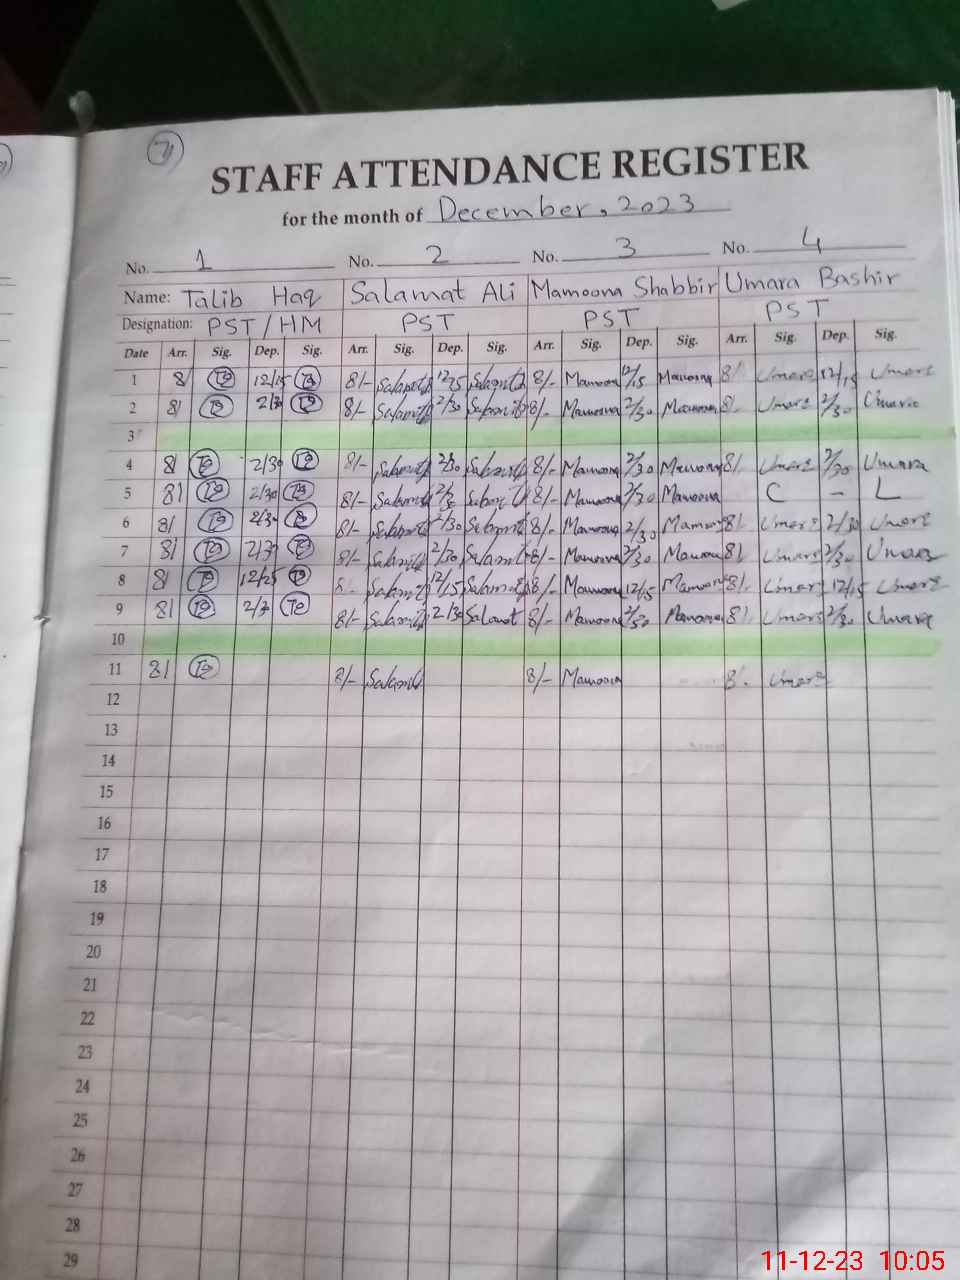 7
STAFF ATTENDANCE REGISTER
for the month of December, 2023
No. 1 No. 2 No. 3 No. 4
Name: Talib Haq Salamat Ali Mamoona Shabbir Umara Bashir
Designation: PST/HM PST PST PST
Date Arr. Sig. Dep. Sig. Arr. Sig. Dep. Sig. Arr. Sig. Dep. Sig. Arr. Sig. Dep. Sig.
1 8/ 12/15 8/- 12/15 8/- Mamoona 12/15 Mamoona 8/. Umara 12/15 Umara
2 8/ 2/30 8/- 2/30 8/- Mamoona 2/30 Mamoona 8/. Umara 2/30 Umara
3
4 8/ 2/30 8/- 2/30 8/- Mamoona 2/30 Mamoona 8/. Umara 2/30 Umara
5 8/ 2/30 8/- 8/- Mamoona 2/30 Mamoona C - L
6 8/ 2/30 8/- 2/30 8/- Mamoona 2/30 Mamoona 8/. Umara 2/30 Umara
7 8/ 8/- 2/30 8/- Mamoona 2/30 Mamoona 8/ Umara 2/30 Umara
8 8/ 8/- 12/15 8/- Mamoona 12/15 Mamoona 8/. Umara 12/15 Umara
9 8/ 8/- 2/30 Salamat 8/- Mamoona 2/30 Mamoona 8/. Umara 2/30 Umara
10
11 8/ 8/- 8/- Mamoona 8/. Umara
12
13
14
15
16
17
18
19
20
21
22
23
24
25
26
27
28
29
11-12-23 10:05